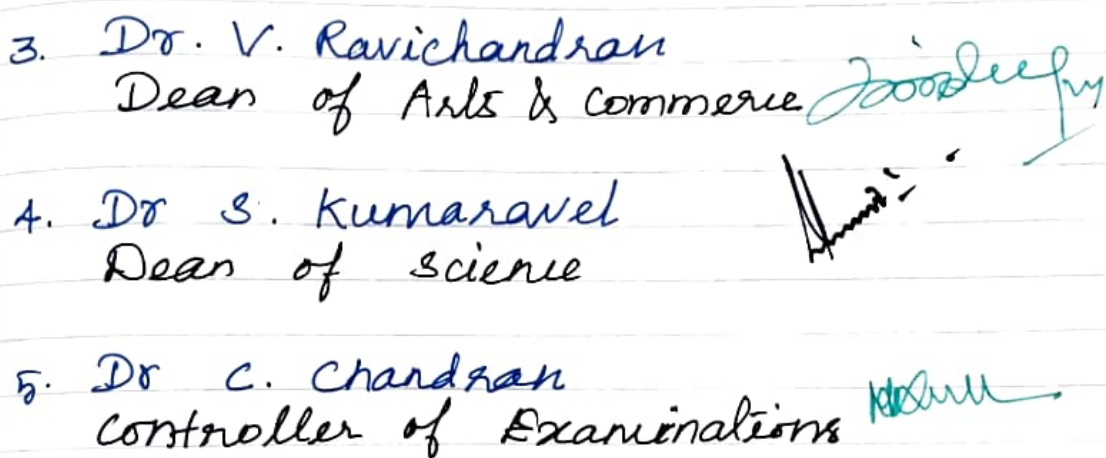 3. Dr. V. Ravichandran
Dean of Arts & Commerce
4. Dr S. Kumaravel
Dean of Science
5. Dr C. Chandran
Controller of Examinations